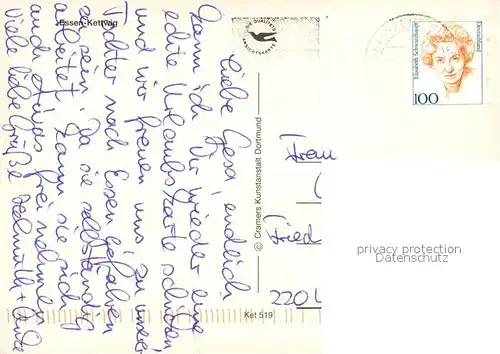 Essen-Kettwig
Liebe Gesa, endlich
kann ich Dir wieder eine
echte Urlaubskarte schicken
und wir freuen uns zu unserer
Tochter nach Essen gefahren
zu sein. Da sie selbständig
arbeitet kann sie sich
auch etwas frei nehmen.
Viele liebe Grüße Helmuth +
© Cramers Kunstanstalt Dortmund
Ket 519
Frau
Fried
220
Elisabeth Schwarzhaupt
Deutschland
100
privacy protection
Datenschutz